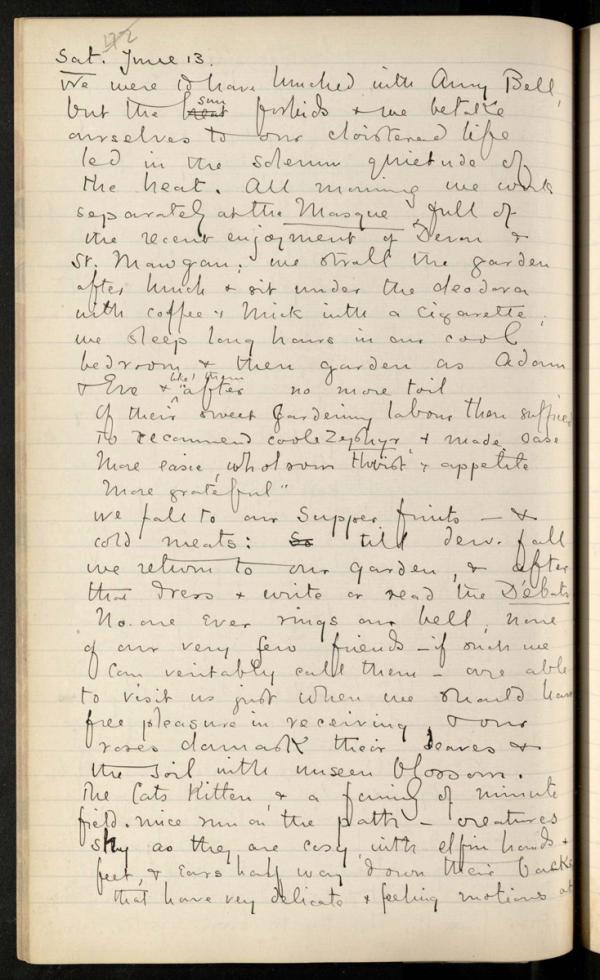 Sat. June 13.
We were to have lunched with Amy Bell,
but the heat sun forbids & we betake
ourselves to our cloistered life
led in the solemn quietude of
the heat. All morning we work
separately at the Masque, full of
the recent enjoyment of Devon &
St. Mawgan; we stroll the garden
after lunch & sit under the deodara
with coffee & Mick with a cigarette;
we sleep long hours in our cool
bedroom & then garden as Adam
& Eve & like them "after no more toil
Of their sweet Gardening labour then suffic'd
To recommend coole Zephyr, & made ease
More easie, wholsom thirst & appetite
More grateful"
We fall to our Supper fruits – &
cold meats: So till dew-fall
we return to our garden, & after
that dress & write or read the Débats
No-one ever rings our bell, none
of our very few friends – if such we
can veritably call them – are able
to visit us just when we should have
free pleasure in receiving, & our
roses damask their leaves &
the soil with unseen blossom.
The Cats Kitten, & a family of minute
field-mice run on the path – creatures
shy as they are cosy, with elfin hands &
feet, & ears half way down their backs
that have very delicate & feeling motions at